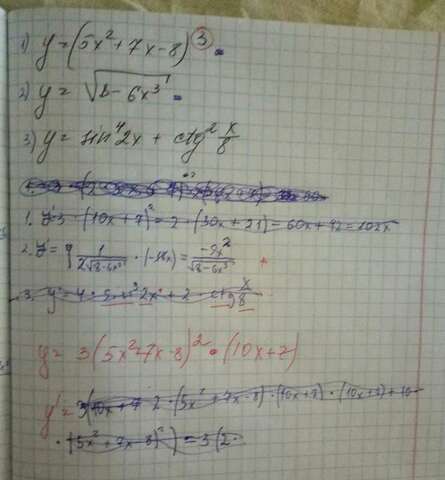 1) y = (5x² + 7x - 8)³
2) y = √(8 - 6x³)
3) y = sin⁴ 2x + ctg² x/8
1. 3 · (10x + 7)² = 2 · (30x + 21) = 60x + 42 = 102x
2. y' = 1/(2√(8-6x³)) · (-18x) = -9x²/√(8-6x³) +
3. y' = 4 · 2x + 2 · ctg x/8
y = 3(5x²+7x-8)² · (10x+7)
y' = 2 · (5x² + 7x - 8) · (10x + 7) · (10x + 7) + 10
· (5x² + 7x - 8)²) = 3(2 ·